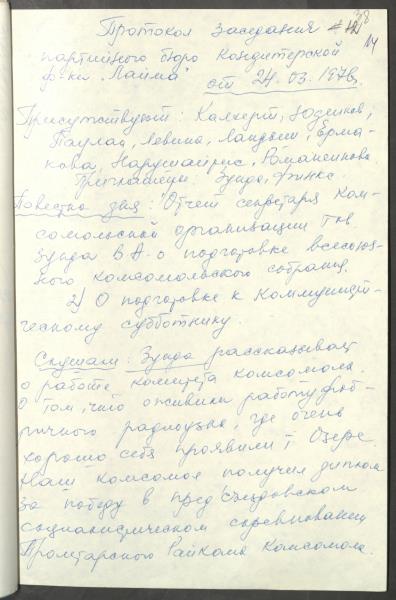 38
14
Протокол заседания
партийного бюро Кондитерской
ф-ки "Лайма" от 24.03.1978г.
Присутствуют: Калкерт,
Паулал, Левина, Ландыш, Ерма-
кова, Романенкова
Приглашены: Зунда, Финкс.
Повестка дня: Отчет секретаря Ком-
сомольской организации тов.
Зунда В.А. о подготовке всесоюз-
ного комсомольского собрания.
2) О подготовке к Коммунист-
ческому субботнику.
Слушали: Зунда рассказывает
о работе комитета комсомола.
О том, что оживили работу фаб-
ричного радиоузла, где очень
хорошо себя проявили т. Озере.
Наш комсомол получил диплом
за победу в предсъездовском
социалистическом соревновании
Пролетарского Райкома Комсомола.